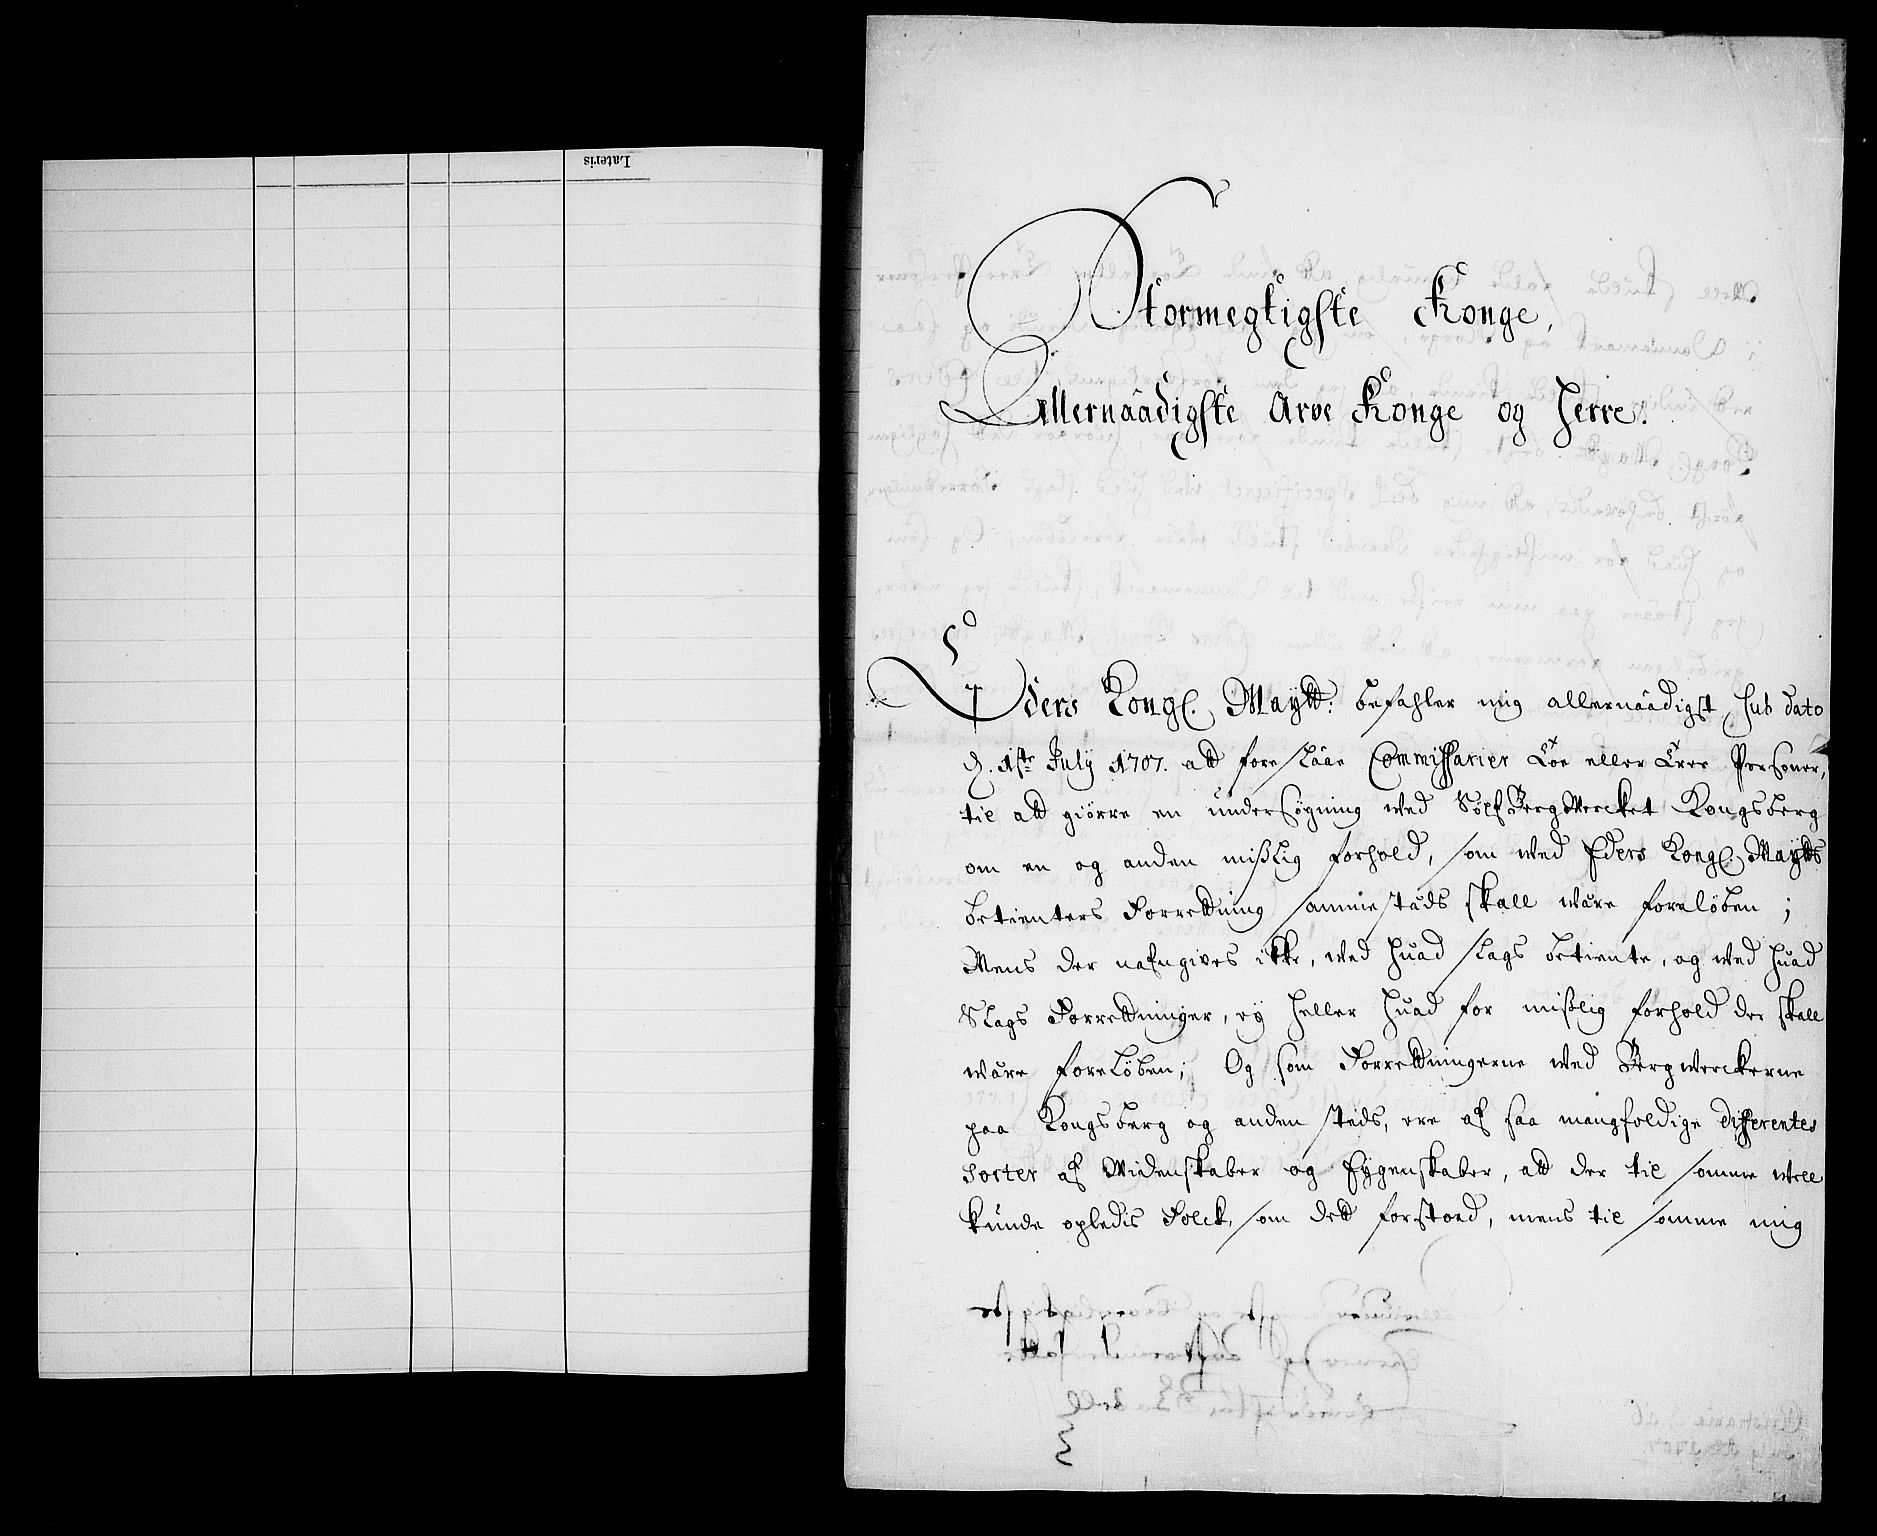 Lateris
Stormegtigste Konge,
Allernaadigste Arve Konge og Herre.
Eders Kongl. Maytt: befahler mig allernaadigst sub dato
d. 1ste July 1707. att foreslaae Commissarier Toe eller Tree Personer,
til att giörre en undersögning wed Sölf BergWercket Kongsberg
om en og anden mißlig forhold, som wed Eders Kongl. Maytts
betienters Forrettning sammestæds skall wære foreløben ;
Mens der nafngives ikke, wed huad slags betiente, og wed huad
Slags Forrettninger, ey heller huad for mißlig forhold der skall
wære foreløben; Og som Forrettningerne wed Bergwerckerne
paa Kongsberg og anden steds, ere af saa mangfoldige differentes
Sorter af Widenskaber og Eygenskaber, att der til somme well
kunde opledis Folck, som dett forstoed, mens til somme mig